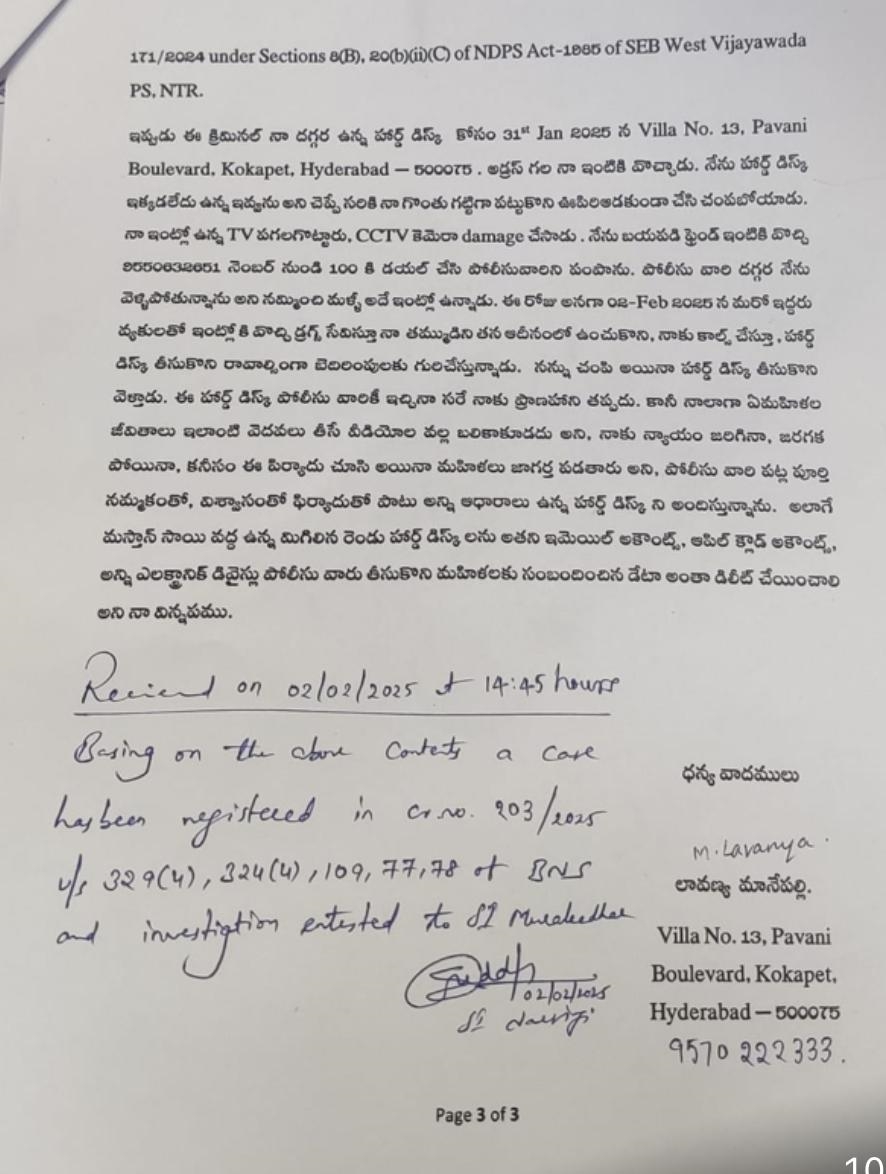 171/2024 under Sections 8(B), 20(b)(ii)(C) of NDPS Act-1985 of SEB West Vijayawada
PS, NTR.
ఇప్పుడు ఈ క్రిమినల్ నా దగ్గర ఉన్న హార్డ్ డిస్క్ కోసం 31st Jan 2025 న Villa No. 13, Pavani
Boulevard, Kokapet, Hyderabad – 500075 . అడ్రస్ గల నా ఇంటికి వొచ్చాడు. నేను హార్డ్ డిస్క్
ఇక్కడలేదు ఉన్న ఇవ్వను అని చెప్పే సరికి నా గొంతు గట్టిగా పట్టుకొని ఊపిరిఆడకుండా చేసి చంపబోయాడు.
నా ఇంట్లో ఉన్న TV పగలగొట్టారు, CCTV కెమెరా damage చేసాడు . నేను బయపడి ఫ్రెండ్ ఇంటికి వొచ్చి
9550632651 నెంబర్ నుండి 100 కి డయల్ చేసి పోలీసువారిని పంపాను. పోలీసు వారి దగ్గర నేను
వెళ్ళిపోతున్నాను అని నమ్మించి మళ్ళీ అదే ఇంట్లో ఉన్నాడు. ఈ రోజు అనగా 02-Feb 2025 న మరో ఇద్దరు
వ్యకులతో ఇంట్లోకి వొచ్చి డ్రగ్స్ సేవిస్తూ నా తమ్ముడిని తన ఆదీనంలో ఉంచుకొని, నాకు కాల్స్ చేస్తూ , హార్డ్
డిస్క్ తీసుకొని రావాల్సింగా బెదిరింపులకు గురిచేస్తున్నాడు. నన్ను చంపి అయినా హార్డ్ డిస్క్ తీసుకొని
వెళ్తాడు. ఈ హార్డ్ డిస్క్ పోలీసు వారికి ఇచ్చినా సరే నాకు ప్రాణహాని తప్పదు. కానీ నాలాగా ఏమహిళల
జీవితాలు ఇలాంటి వెదవలు తీసే వీడియోల వల్ల బలికాకూడదు అని, నాకు న్యాయం జరిగినా, జరగక
పోయినా, కనీసం ఈ పిర్యాదు చూసి అయినా మహిళలు జాగర్త పడతారు అని, పోలీసు వారి పట్ల పూర్తి
నమ్మకంతో, విశ్వాసంతో ఫిర్యాదుతో పాటు అన్ని ఆధారాలు ఉన్న హార్డ్ డిస్క్ ని అందిస్తున్నాను. అలాగే
మస్తాన్ సాయి వద్ద ఉన్న మిగిలిన రెండు హార్డ్ డిస్క్ లను అతని ఇమెయిల్ అకౌంట్స్, ఆపిల్ క్లౌడ్ అకౌంట్స్,
అన్ని ఎలక్ట్రానిక్ డివైస్లు పోలీసు వారు తీసుకొని మహిళలకు సంబందించిన డేటా అంతా డిలీట్ చేయించాలి
అని నా విన్నపము.
Recieved on 02/02/2025 at 14:45 hours
Basing on the above Contents a case
has been registered in cr.no. 203/2025
u/s 329(4), 324(4), 109, 77, 78 of BNS
and investigtion entrusted to SI Muraleedhar
02/02/2025
SI Narsingi
ధన్య వాదములు
M. Lavanya.
లావణ్య మానేపల్లి.
Villa No. 13, Pavani
Boulevard, Kokapet,
Hyderabad – 500075
9570 222333.
Page 3 of 3
10